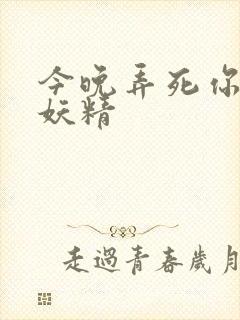 今晚弄死你
妖精
走過青春歲月